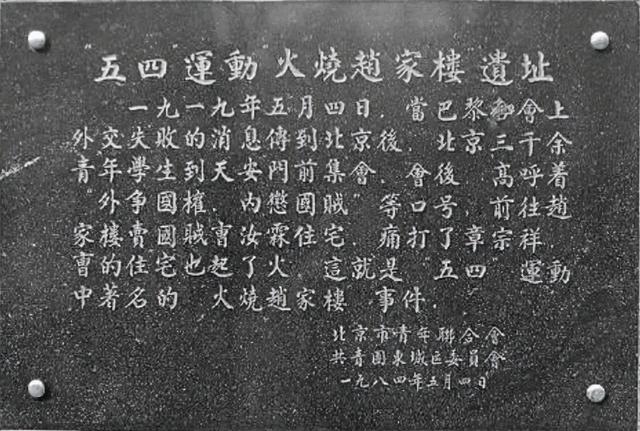 “五四”運動“火燒趙家樓”遺址
一九一九年五月四日，當巴黎和會上
外交失敗的消息傳到北京後，北京三千余
青年學生到天安門前集會，會後高呼着
“外争國權，内懲國賊”等口号，前往趙
家樓賣國賊曹汝霖住宅，痛打了章宗祥，
曹的住宅也起了火，這就是“五四”運動
中著名的“火燒趙家樓”事件．
北京市青年聯合會
共青團東城區委員會
一九八四年五月四日